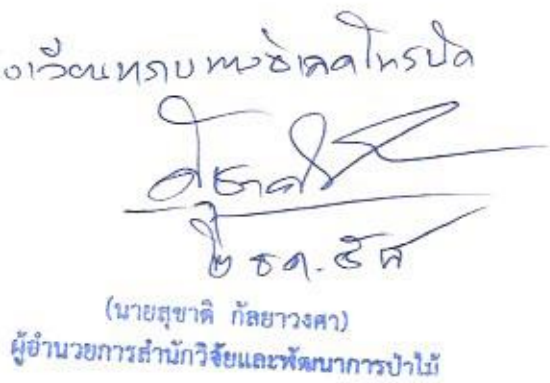 เวียนทราบทางอิเลคโทรนิค
สุชาติ
๒ ธค. ๕๘
(นายสุชาติ กัลยาวงศา)
ผู้อำนวยการสำนักวิจัยและพัฒนาการป่าไม้